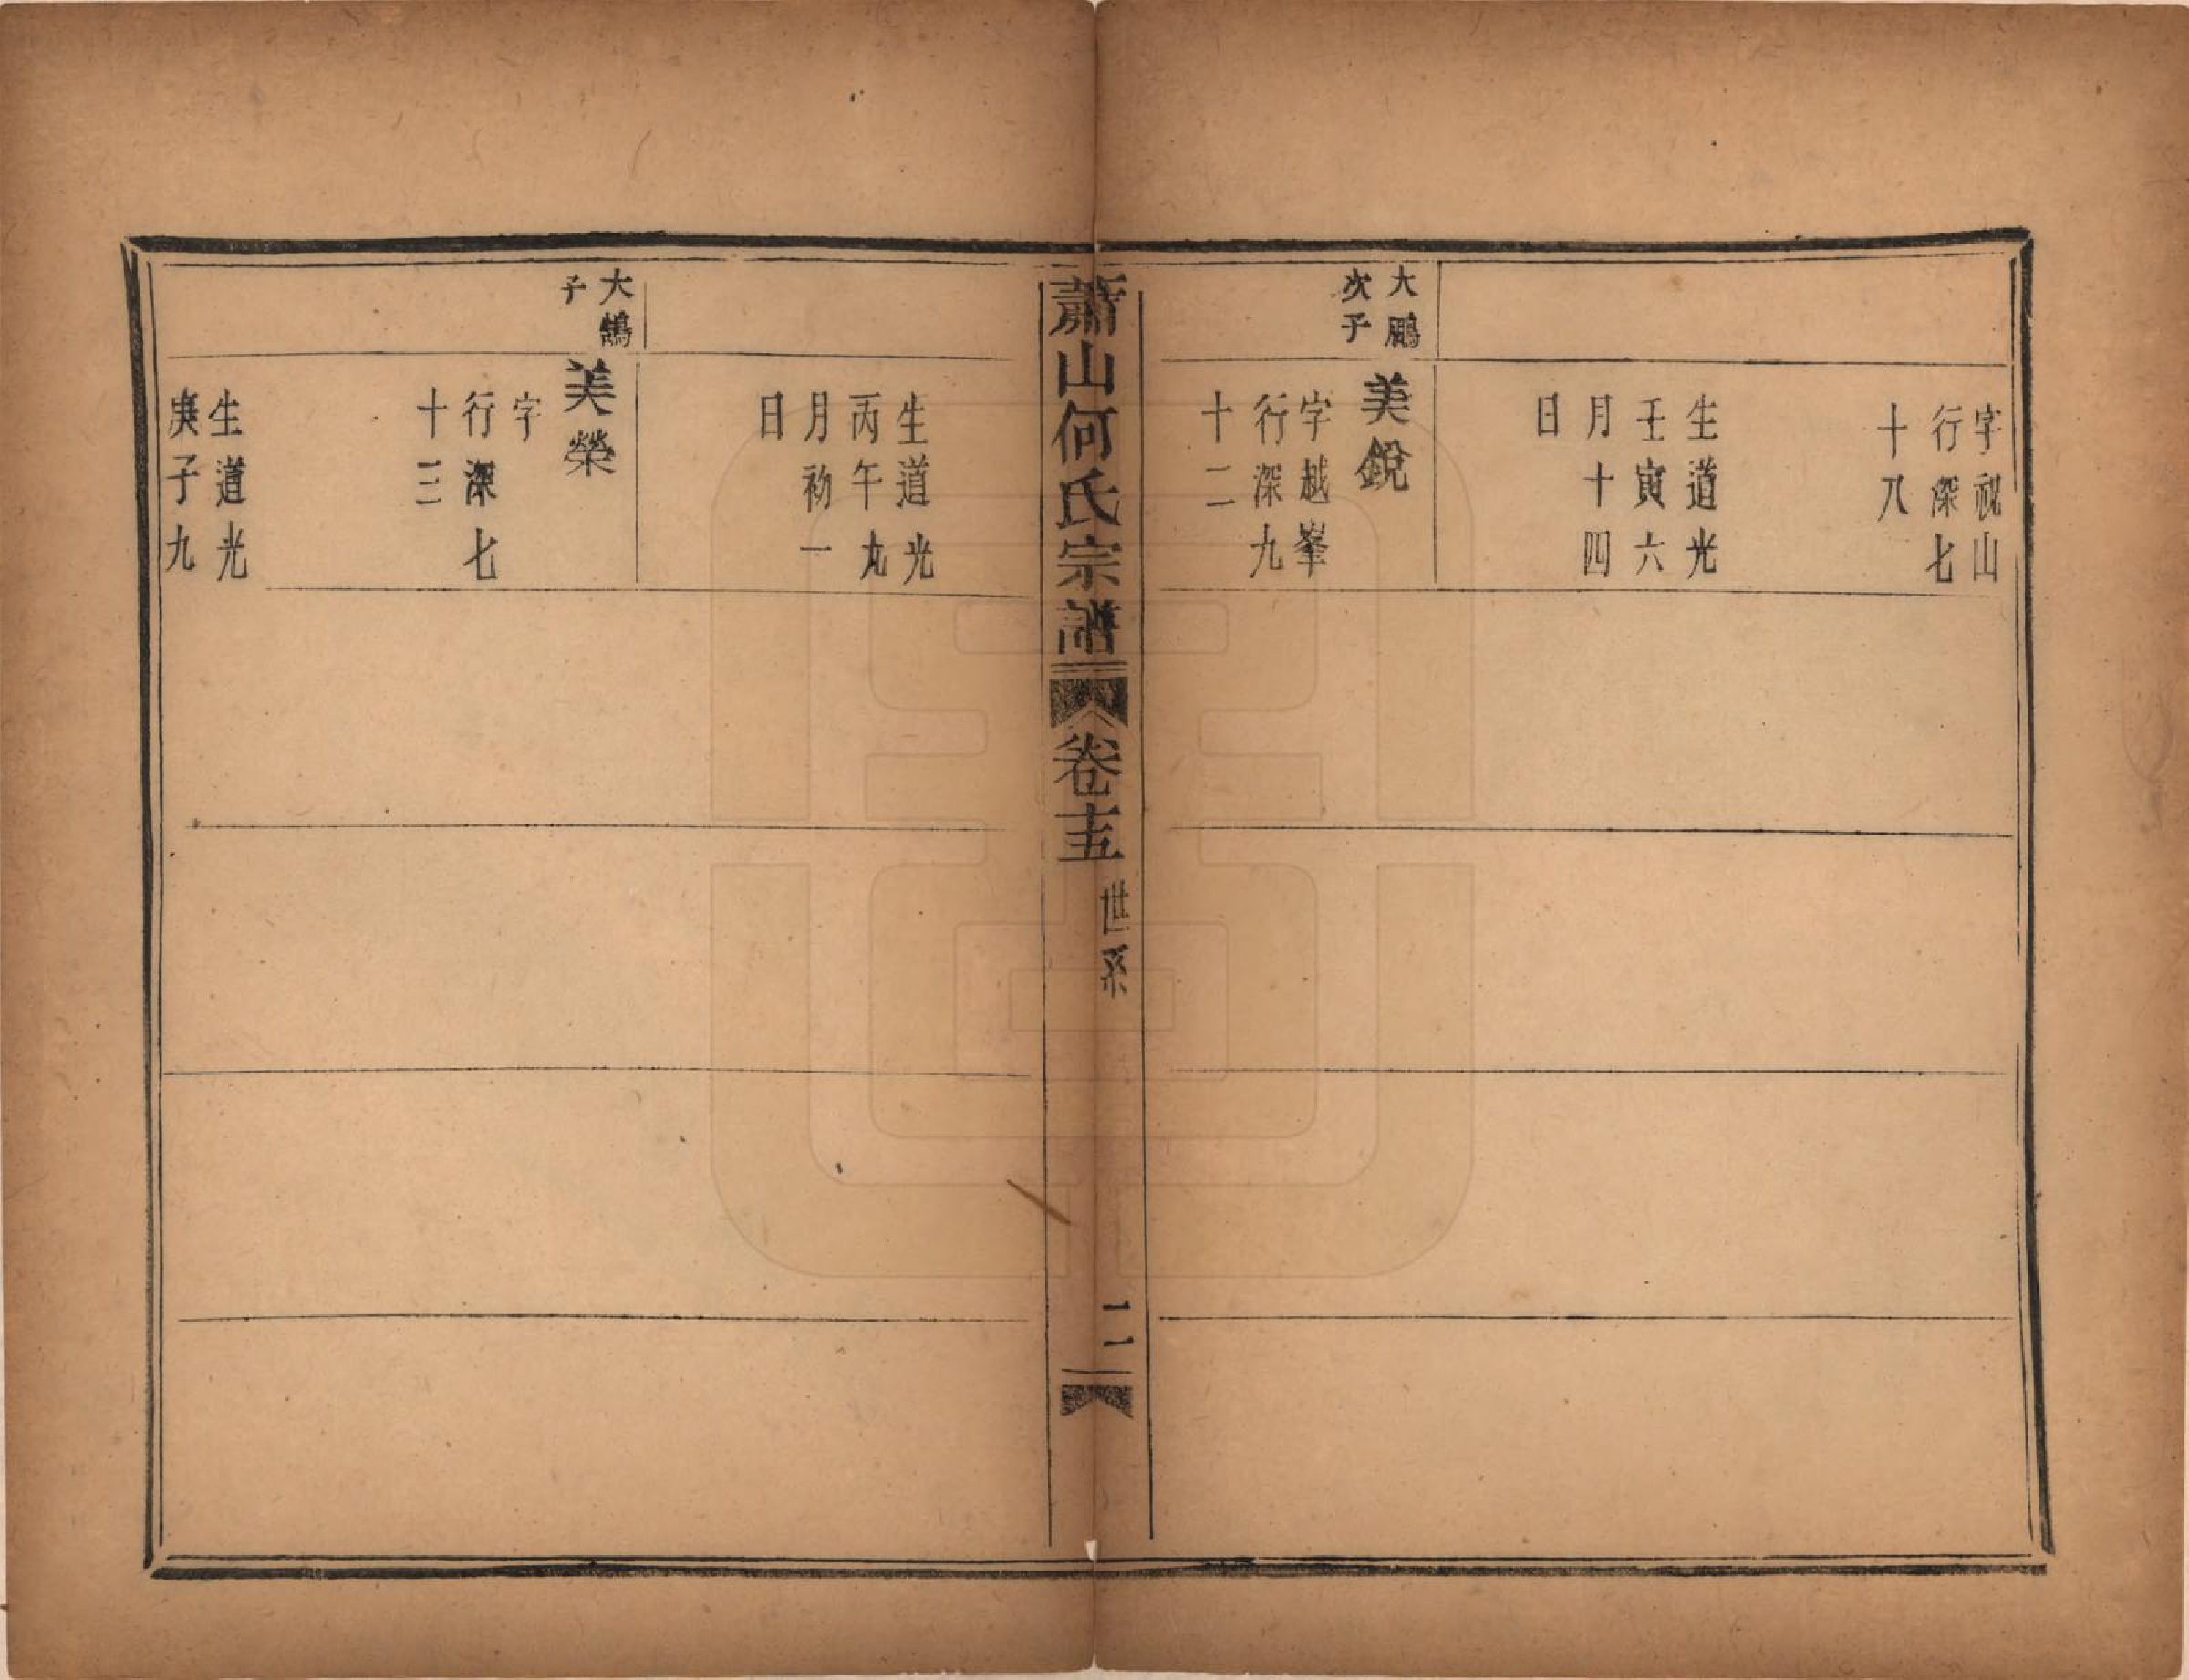 字視山
行深七
十八
生道光
壬寅六
月十四
日
大鵬
次子
美銳
字越峯
行深九
十二
蕭山何氏宗譜
卷十五
世系
二
生道光
丙午九
月初一
日
大鵠
子
美榮
字
行深七
十三
生道光
庚子九